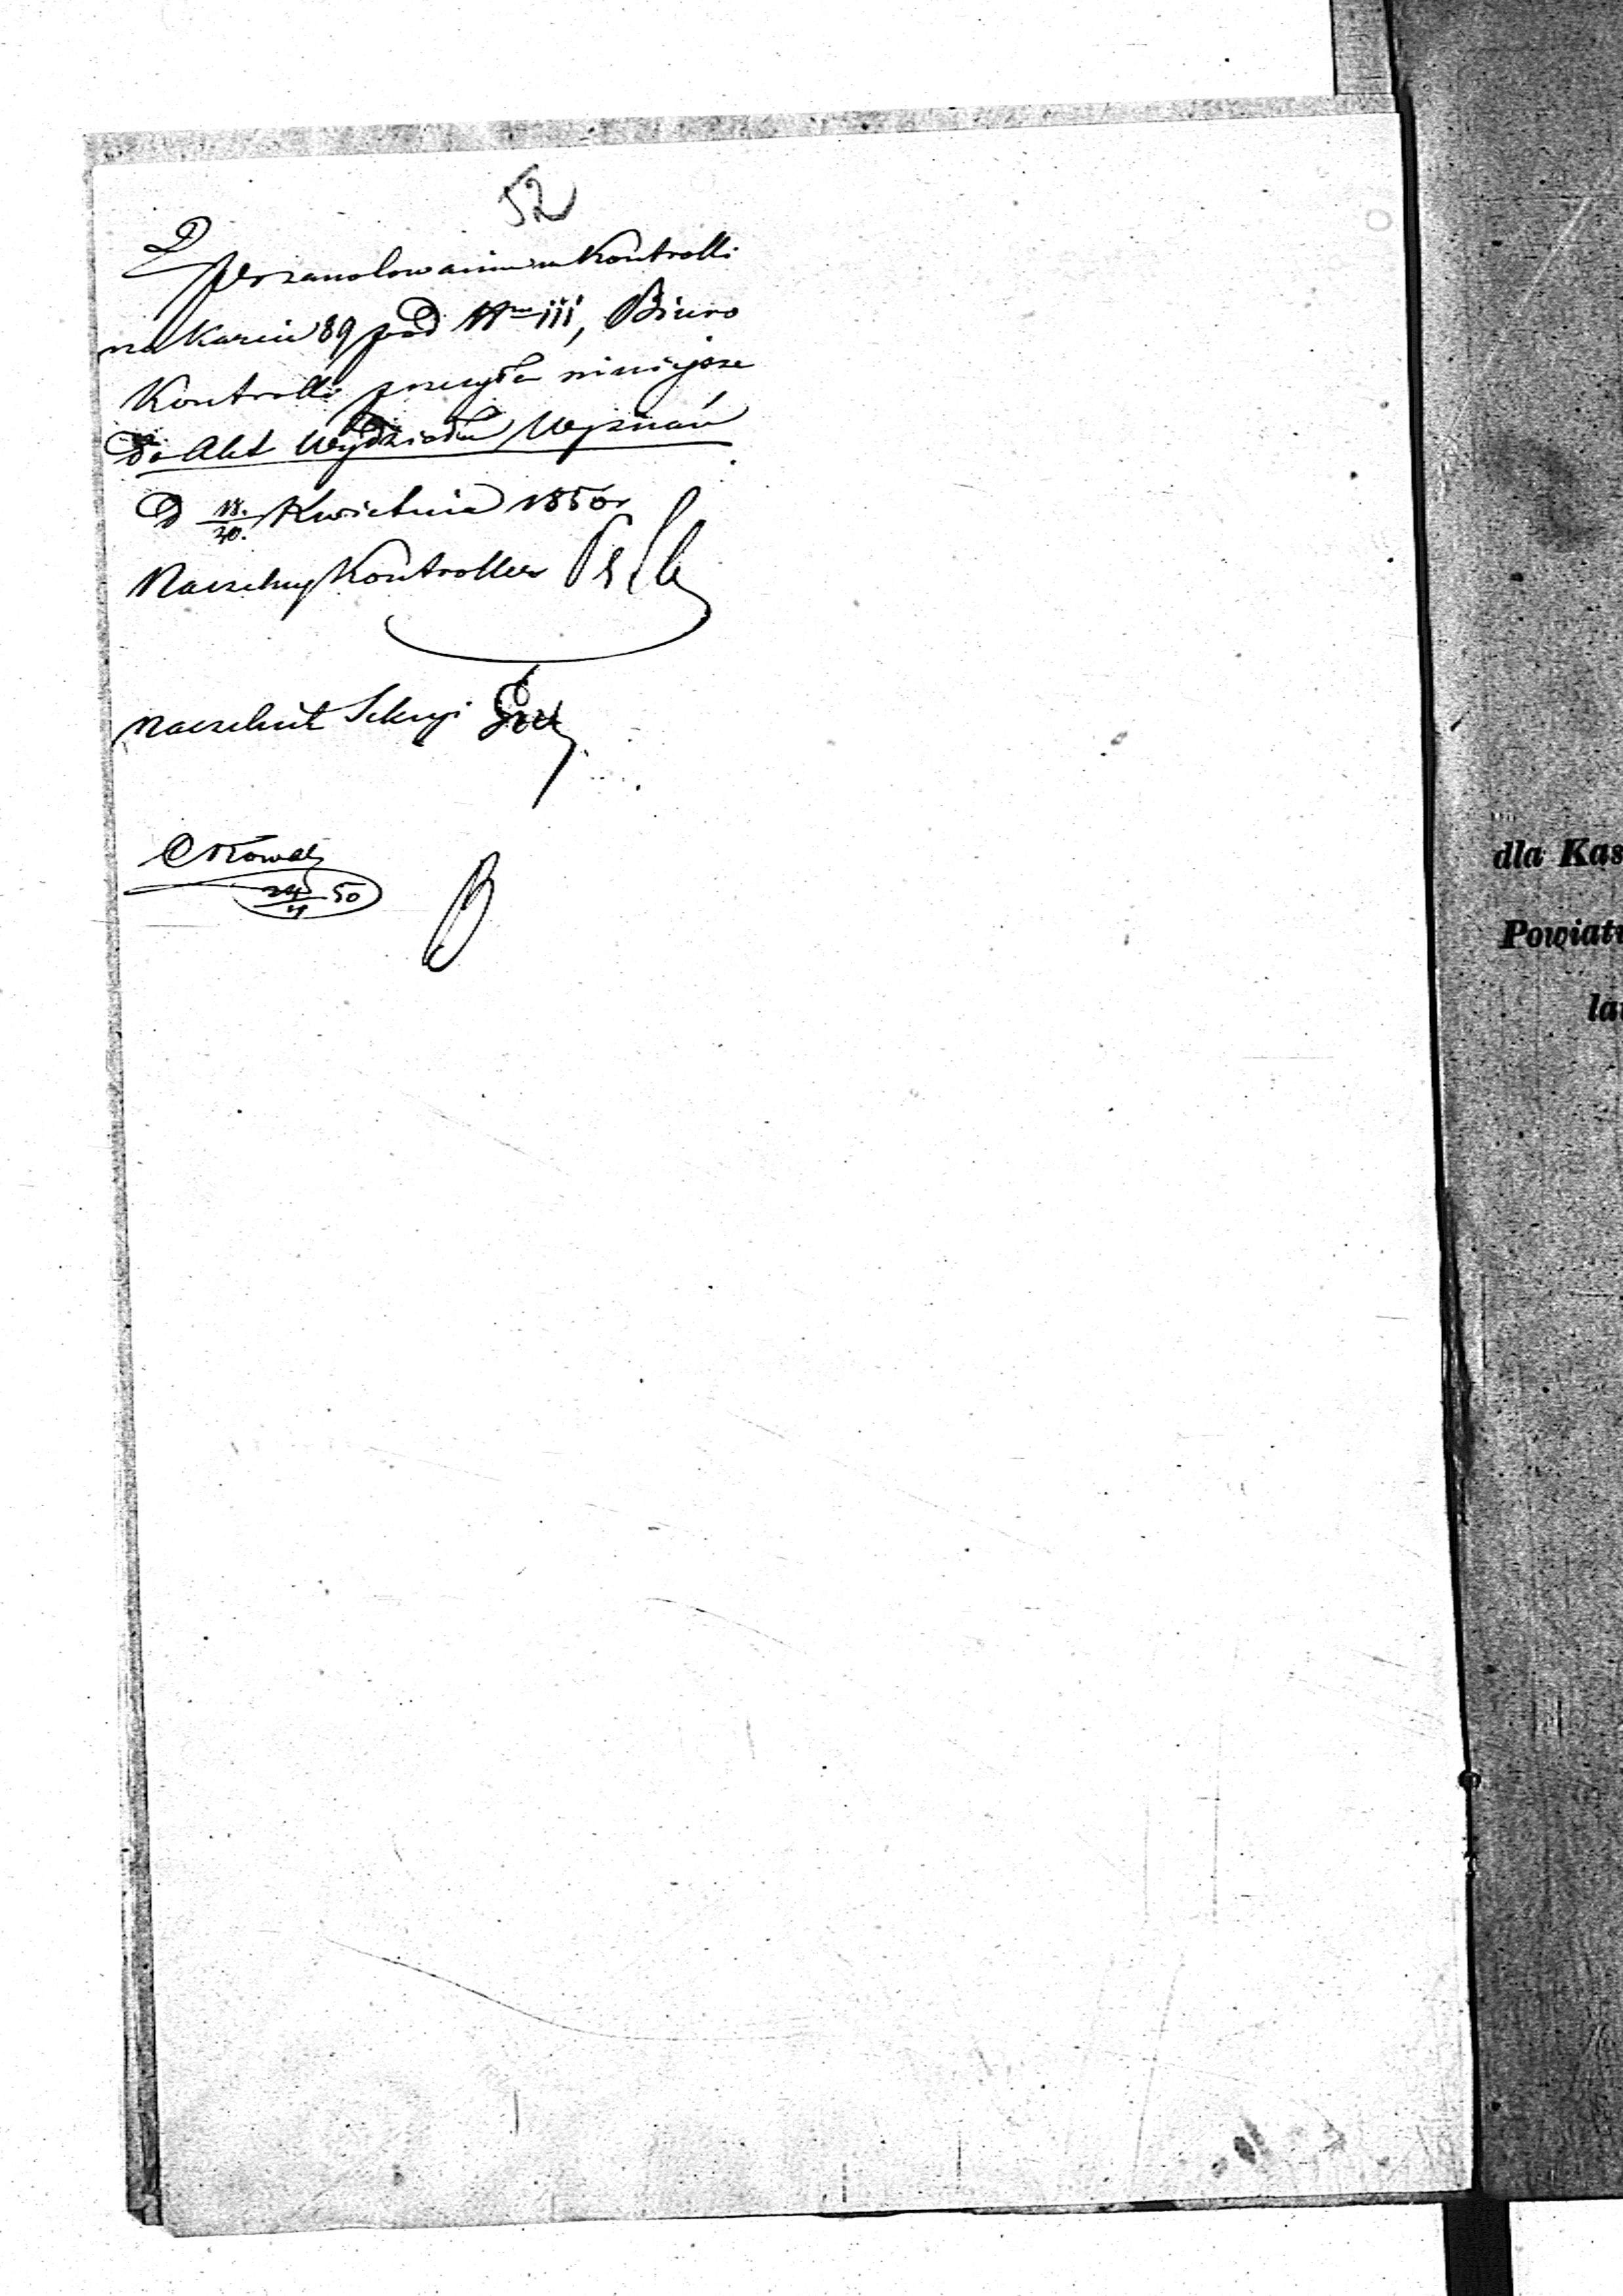 52
Po zanotowaniu w Kontrolli
na Karcie 89 pod Nrm III, Biuro
Kontrolli przesyła niniejsze
do Akt Wydziału Wyznań
d 18./30. Kwietnia 1850 r
Naczelny Kontroller
Naczelnik Sekcyi
24/4 50
dla Kas
Powiatu